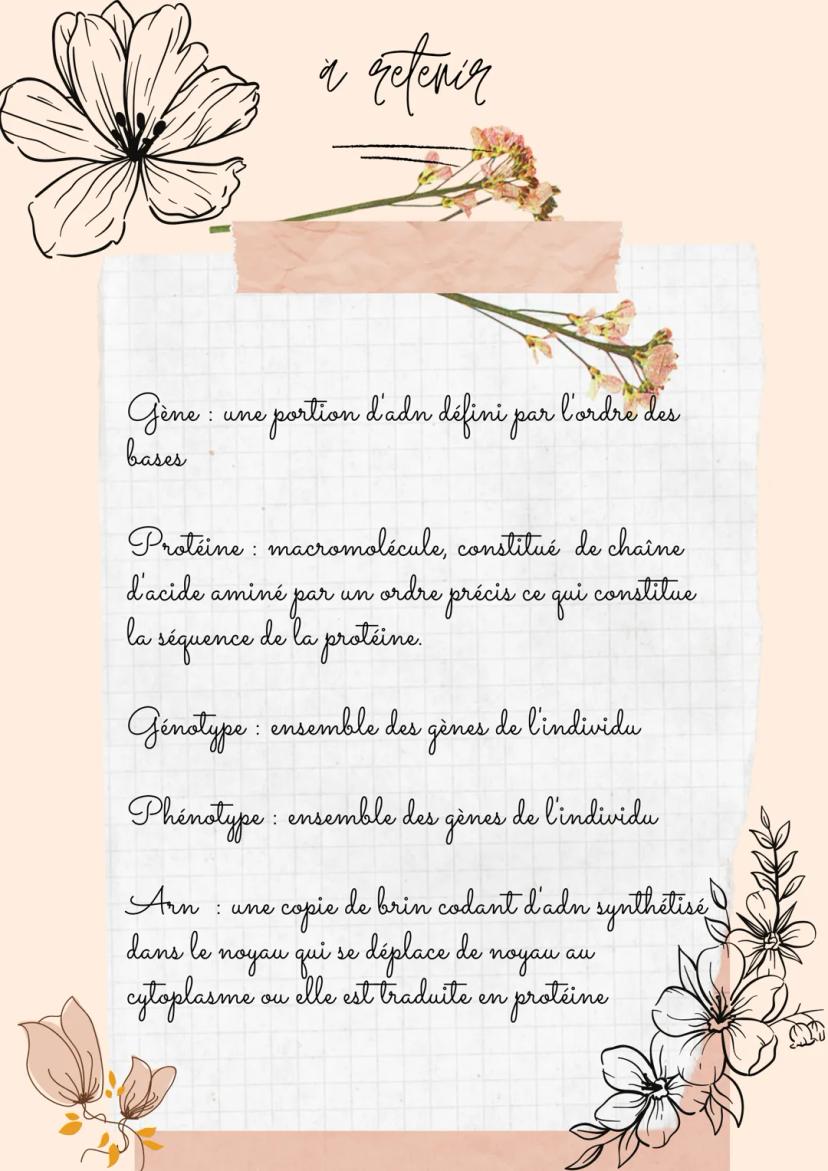 à retenir
Gène : une portion d'adn défini par l'ordre des
bases
Protéine : macromolécule, constitué de chaîne
d'acide aminé par un ordre précis ce qui constitue
la séquence de la protéine.
Génotype : ensemble des gènes de l'individu
Phénotype : ensemble des gènes de l'individu
Arn : une copie de brin codant d'adn synthétisé
dans le noyau qui se déplace de noyau au
cytoplasme ou elle est traduite en protéine